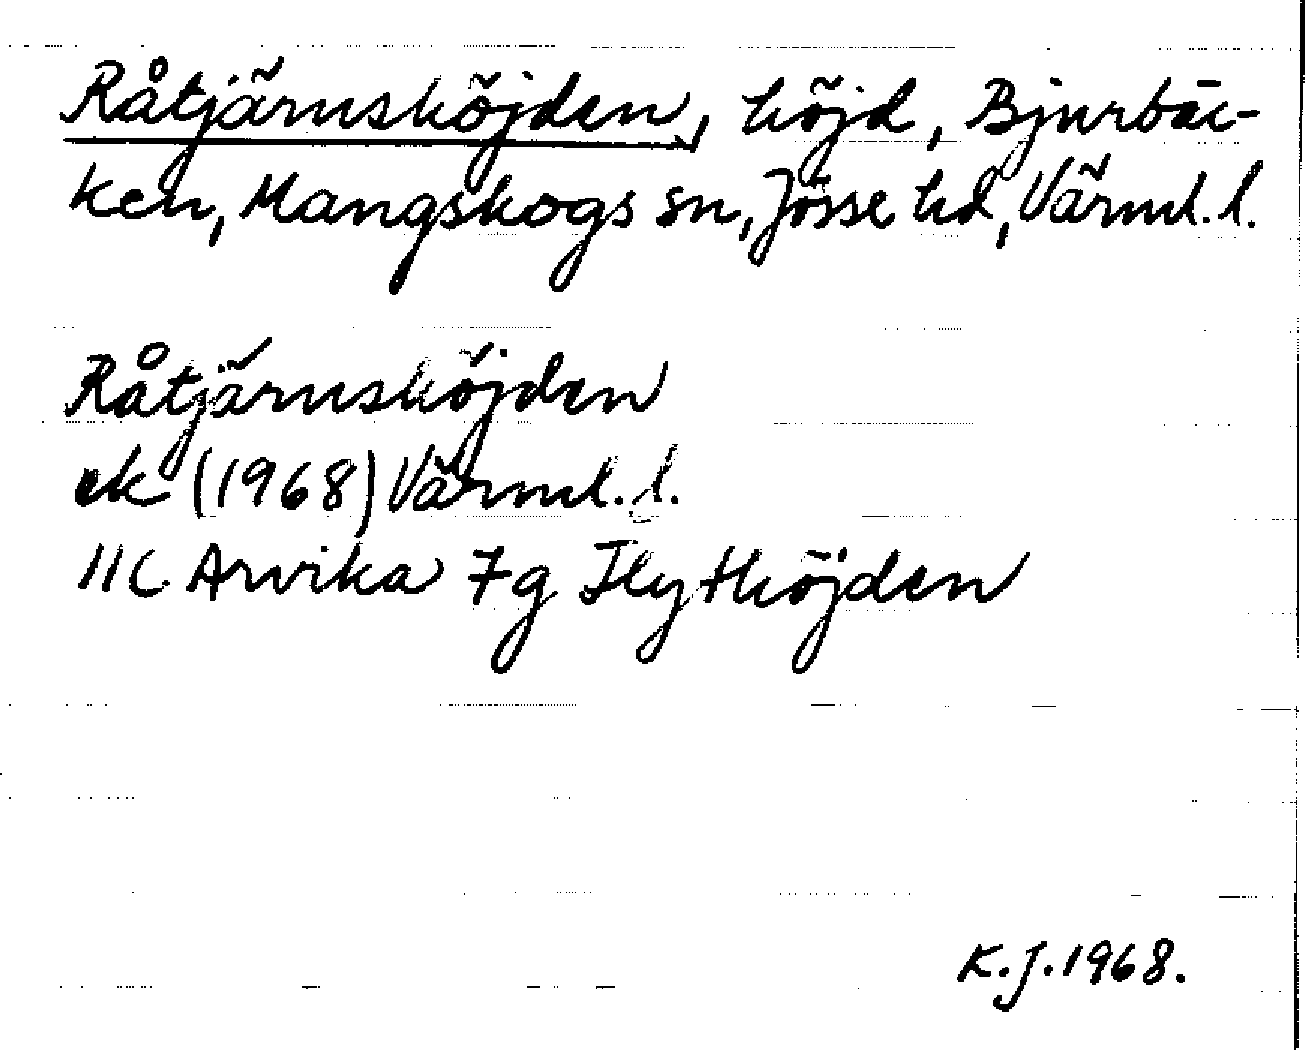 Råtjärnshöjden, höjd, Bjurbäc-
ken, Mangskogs sn, Jösse hd, Värml. l.
Råtjärnshöjden
ek (1968) Värml. l.
11C Arvika 7g Flythöjden
K.J. 1968.